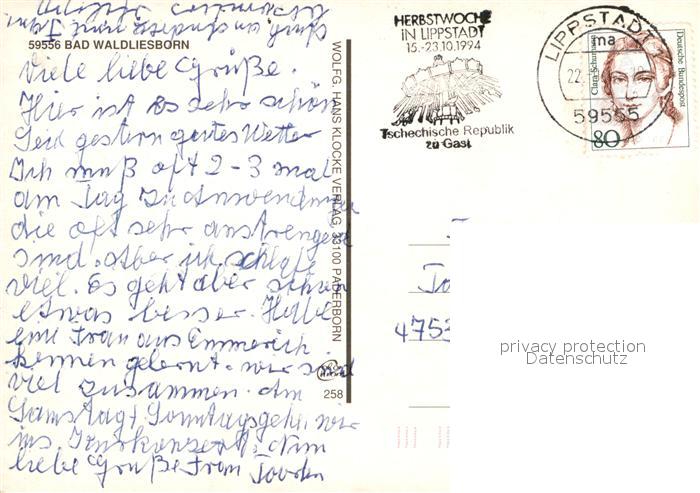 59556 BAD WALDLIESBORN
Viele liebe Grüße.
Hier ist es sehr schön
Seid gestern gutes Wetter
Ich muß oft 2-3 mal
am Tag zu Anwendungen
die oft sehr anstrengend
sind. Aber ich schlafe
viel. Es geht aber schon
etwas besser. Habe
eine Frau aus Emmerich
kennen gelernt. wir sind
viel zusammen. Am
Samstag + Sonntag gehn wir
ins Kurkonzert. Nun
liebe Grüße Frau
WOLFG. HANS KLOCKE VERLAG, 33100 PADERBORN
258
HERBSTWOCHE
IN LIPPSTADT
15.-23.10.1994
Tschechische Republik
zu Gast
LIPPSTADT
ma
22.
59555
Deutsche Bundespost
80
4753
privacy protection
Datenschutz